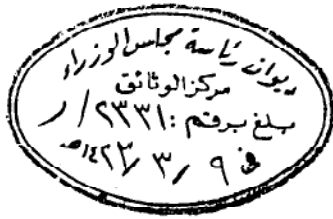 ديوان رئاسة مجلس الوزراء
مركز الوثائق
بلغ برقم : ٢٣٣١ / ر
في ٩ / ٣ / ١٤٢٢هـ